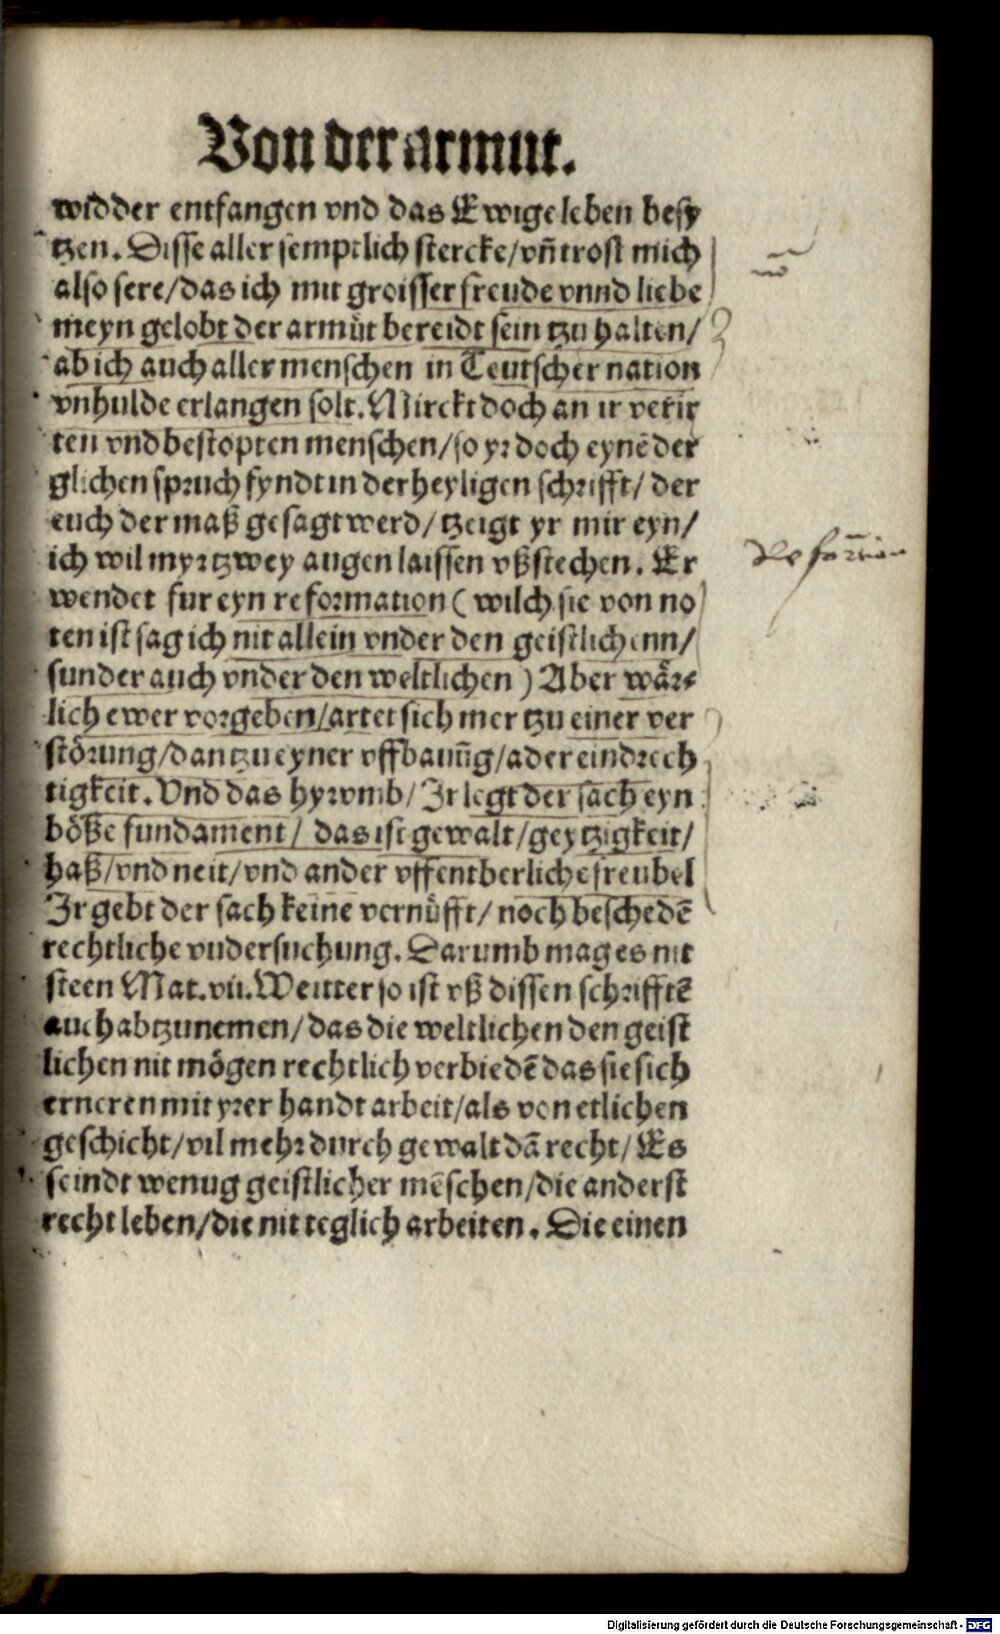 Von der armut.
widder entfangen vnd das Ewige leben besy
tzen. Disse aller semptlich stercke/vn̄ trost mich
also sere/das ich mit groisser freude vnnd liebe
meyn gelobt der armůt bereidt sein tzu halten/
ab ich auch aller menschen in Teutscher nation
vnhulde erlangen solt. Mirckt doch an ir verir
ten vnd bestopten menschen/so yr doch eynē der
glichen spruch fyndt in der heyligen schrifft/ der
euch der maß gesagt werd/ tzeigt yr mir eyn/
ich wil myr tzwey augen laissen vßstechen. Er
wendet fur eyn reformation ( wilch sie von no
ten ist sag ich nit allein vnder den geistlichenn/
sunder auch vnder den weltlichen ) Aber wår⸗
lich ewer vorgeben/artet sich mer tzu einer ver
störung/dan tzu eyner vffbauūg/ader eindrech
tigkeit. Vnd das hyrvmb/ Ir legt der sach eyn
böße fundament/ das ist gewalt/geytzigkeit/
haß/vnd neit/vnd ander vffentberliche freubel
Ir gebt der sach keine vernůfft/ noch beschedē
rechtliche vudersuchung. Darumb mag es nit
steen Mat.vii. Weitter so ist vß dissen schrifftē
auch abtzunemen/das die weltlichen den geist
lichen nit mögen rechtlich verbiedē das sie sich
erneren mit yrer handt arbeit/als von etlichen
geschicht/vil mehr durch gewalt dā recht/ Es
seindt wenug geistlicher mēschen/die anderst
recht leben/die nit teglich arbeiten. Die einen
Digitalisierung gefördert durch die Deutsche Forschungsgemeinschaft - DFG